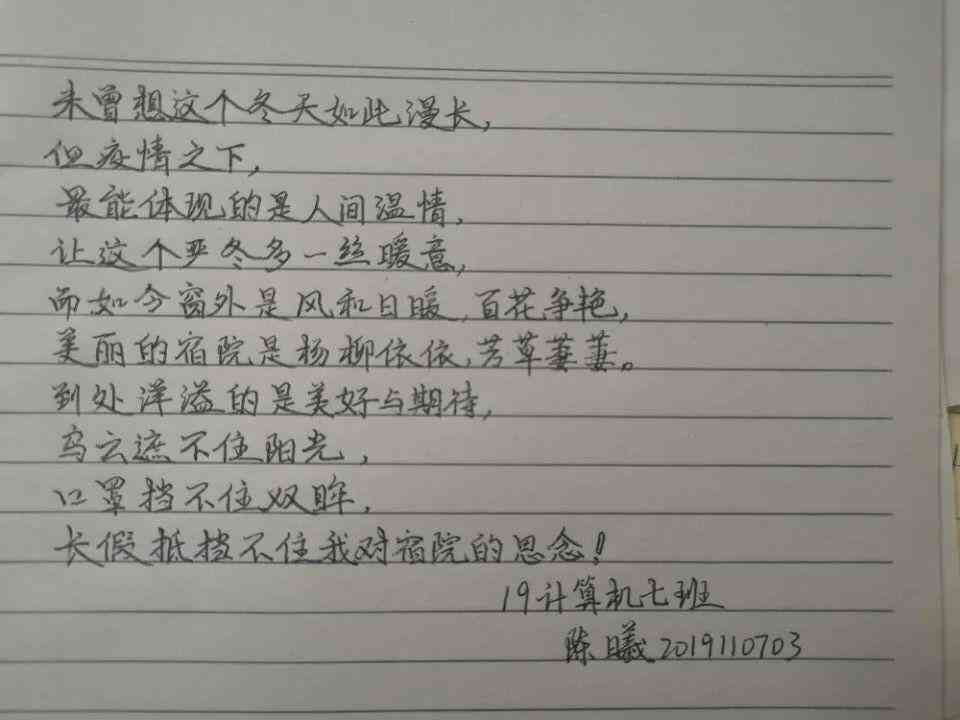 未曾想这个冬天如此漫长,
但疫情之下,
最能体现的是人间温情,
让这个严冬多一丝暖意,
而如今窗外是风和日暖,百花争艳,
美丽的宿院是杨柳依依,芳草萋萋。
到处洋溢的是美好与期待,
乌云遮不住阳光,
口罩挡不住双眸,
长假抵挡不住我对宿院的思念!
19计算机七班
陈曦2019110703